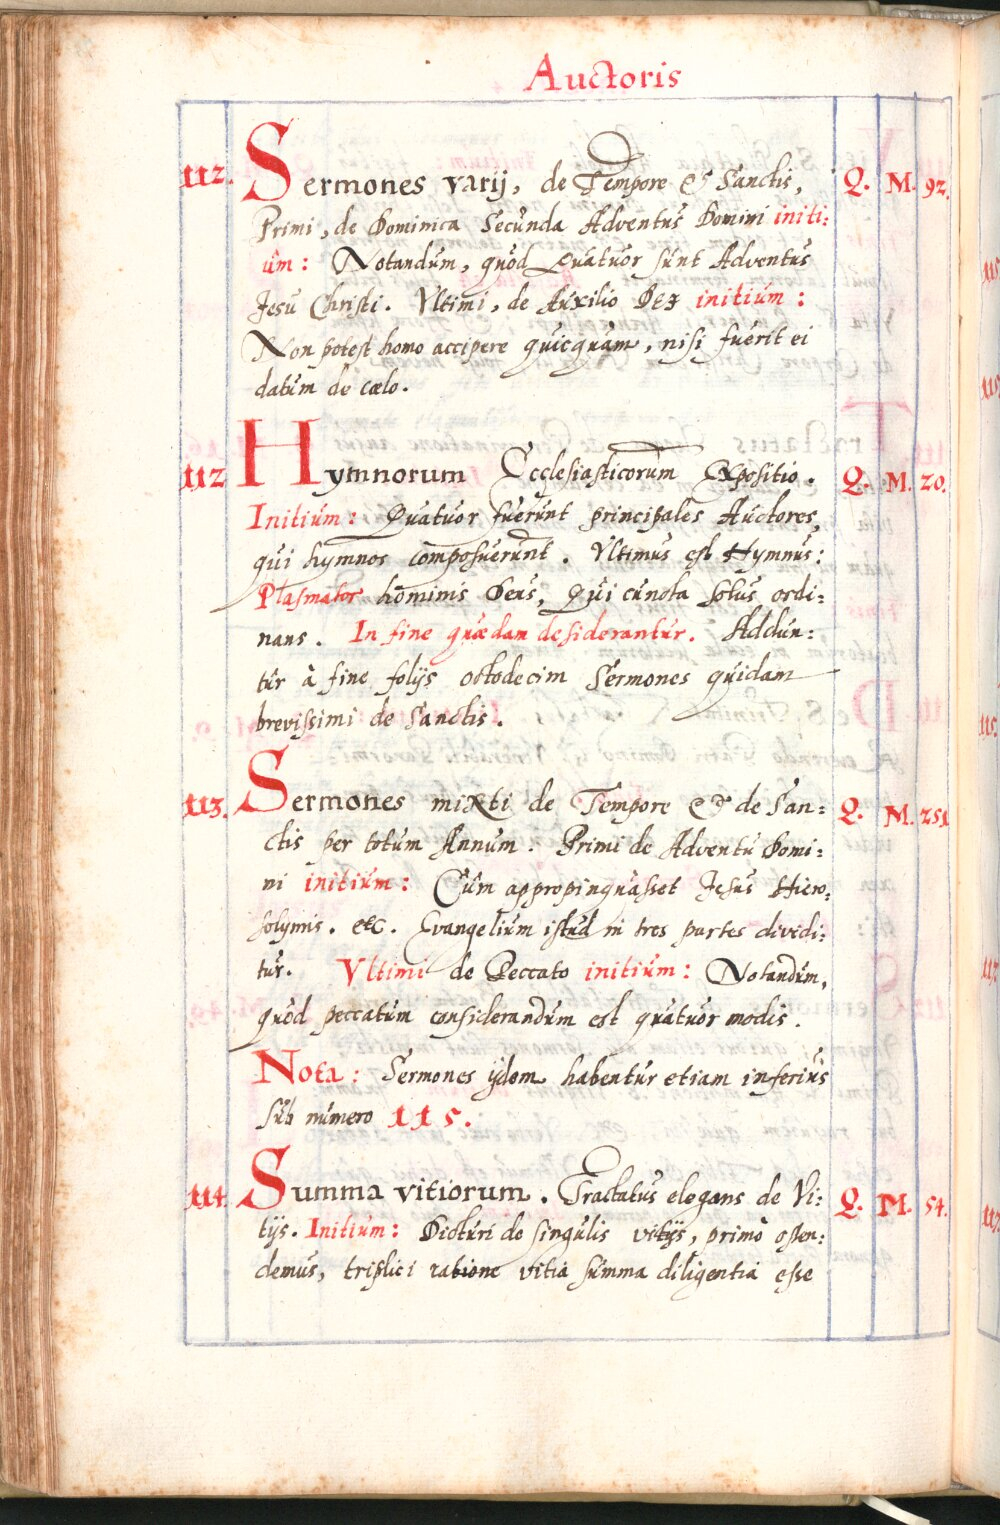 Auctoris
112. Sermones varij, de Tempore & Sanctis, Q. M. 92.
Primi, de Dominica Secunda Adventus Domini initi:
um: Notandum, quod Quatuor sunt Adventus
Jesu Christi. Ultimi, de Auxilio Dei initium:
Non potest homo accipere quicquam, nisi fuerit ei
datum de cœlo.
112 Hymnorum Ecclesiasticorum Expositio. Q. M. 20.
Initium: Quatuor fuerunt principales Auctores,
qui hymnos composuerunt. Vltimus est Hymnus:
Plasmator hominis Deus, Qui cuncta solus ordi:
nans. In fine quædam desiderantur. Addun:
tur à fine folijs octodecim Sermones quidam
brevissimi de Sanctis.
113. Sermones mixti de Tempore & de San: Q. M. 251
ctis per totum Annum. Primi de Adventu Domi:
ni initium: Cûm appropinquasset Jesus Hiero,
solymis. etc. Evangelium istud in tres partes dividi:
tur. Vltimi de Peccato initium: Notandum,
quod peccatum considerandum est quatuor modis.
Nota: Sermones ijdem habentur etiam inferius
sub numero 115.
114. Summa vitiorum. Tractatus elegans de Vi: Q. M. 54.
tijs. Initium: Dicturi de singulis vitijs, primò osten:
demus, triplici ratione vitia summa diligentia esse